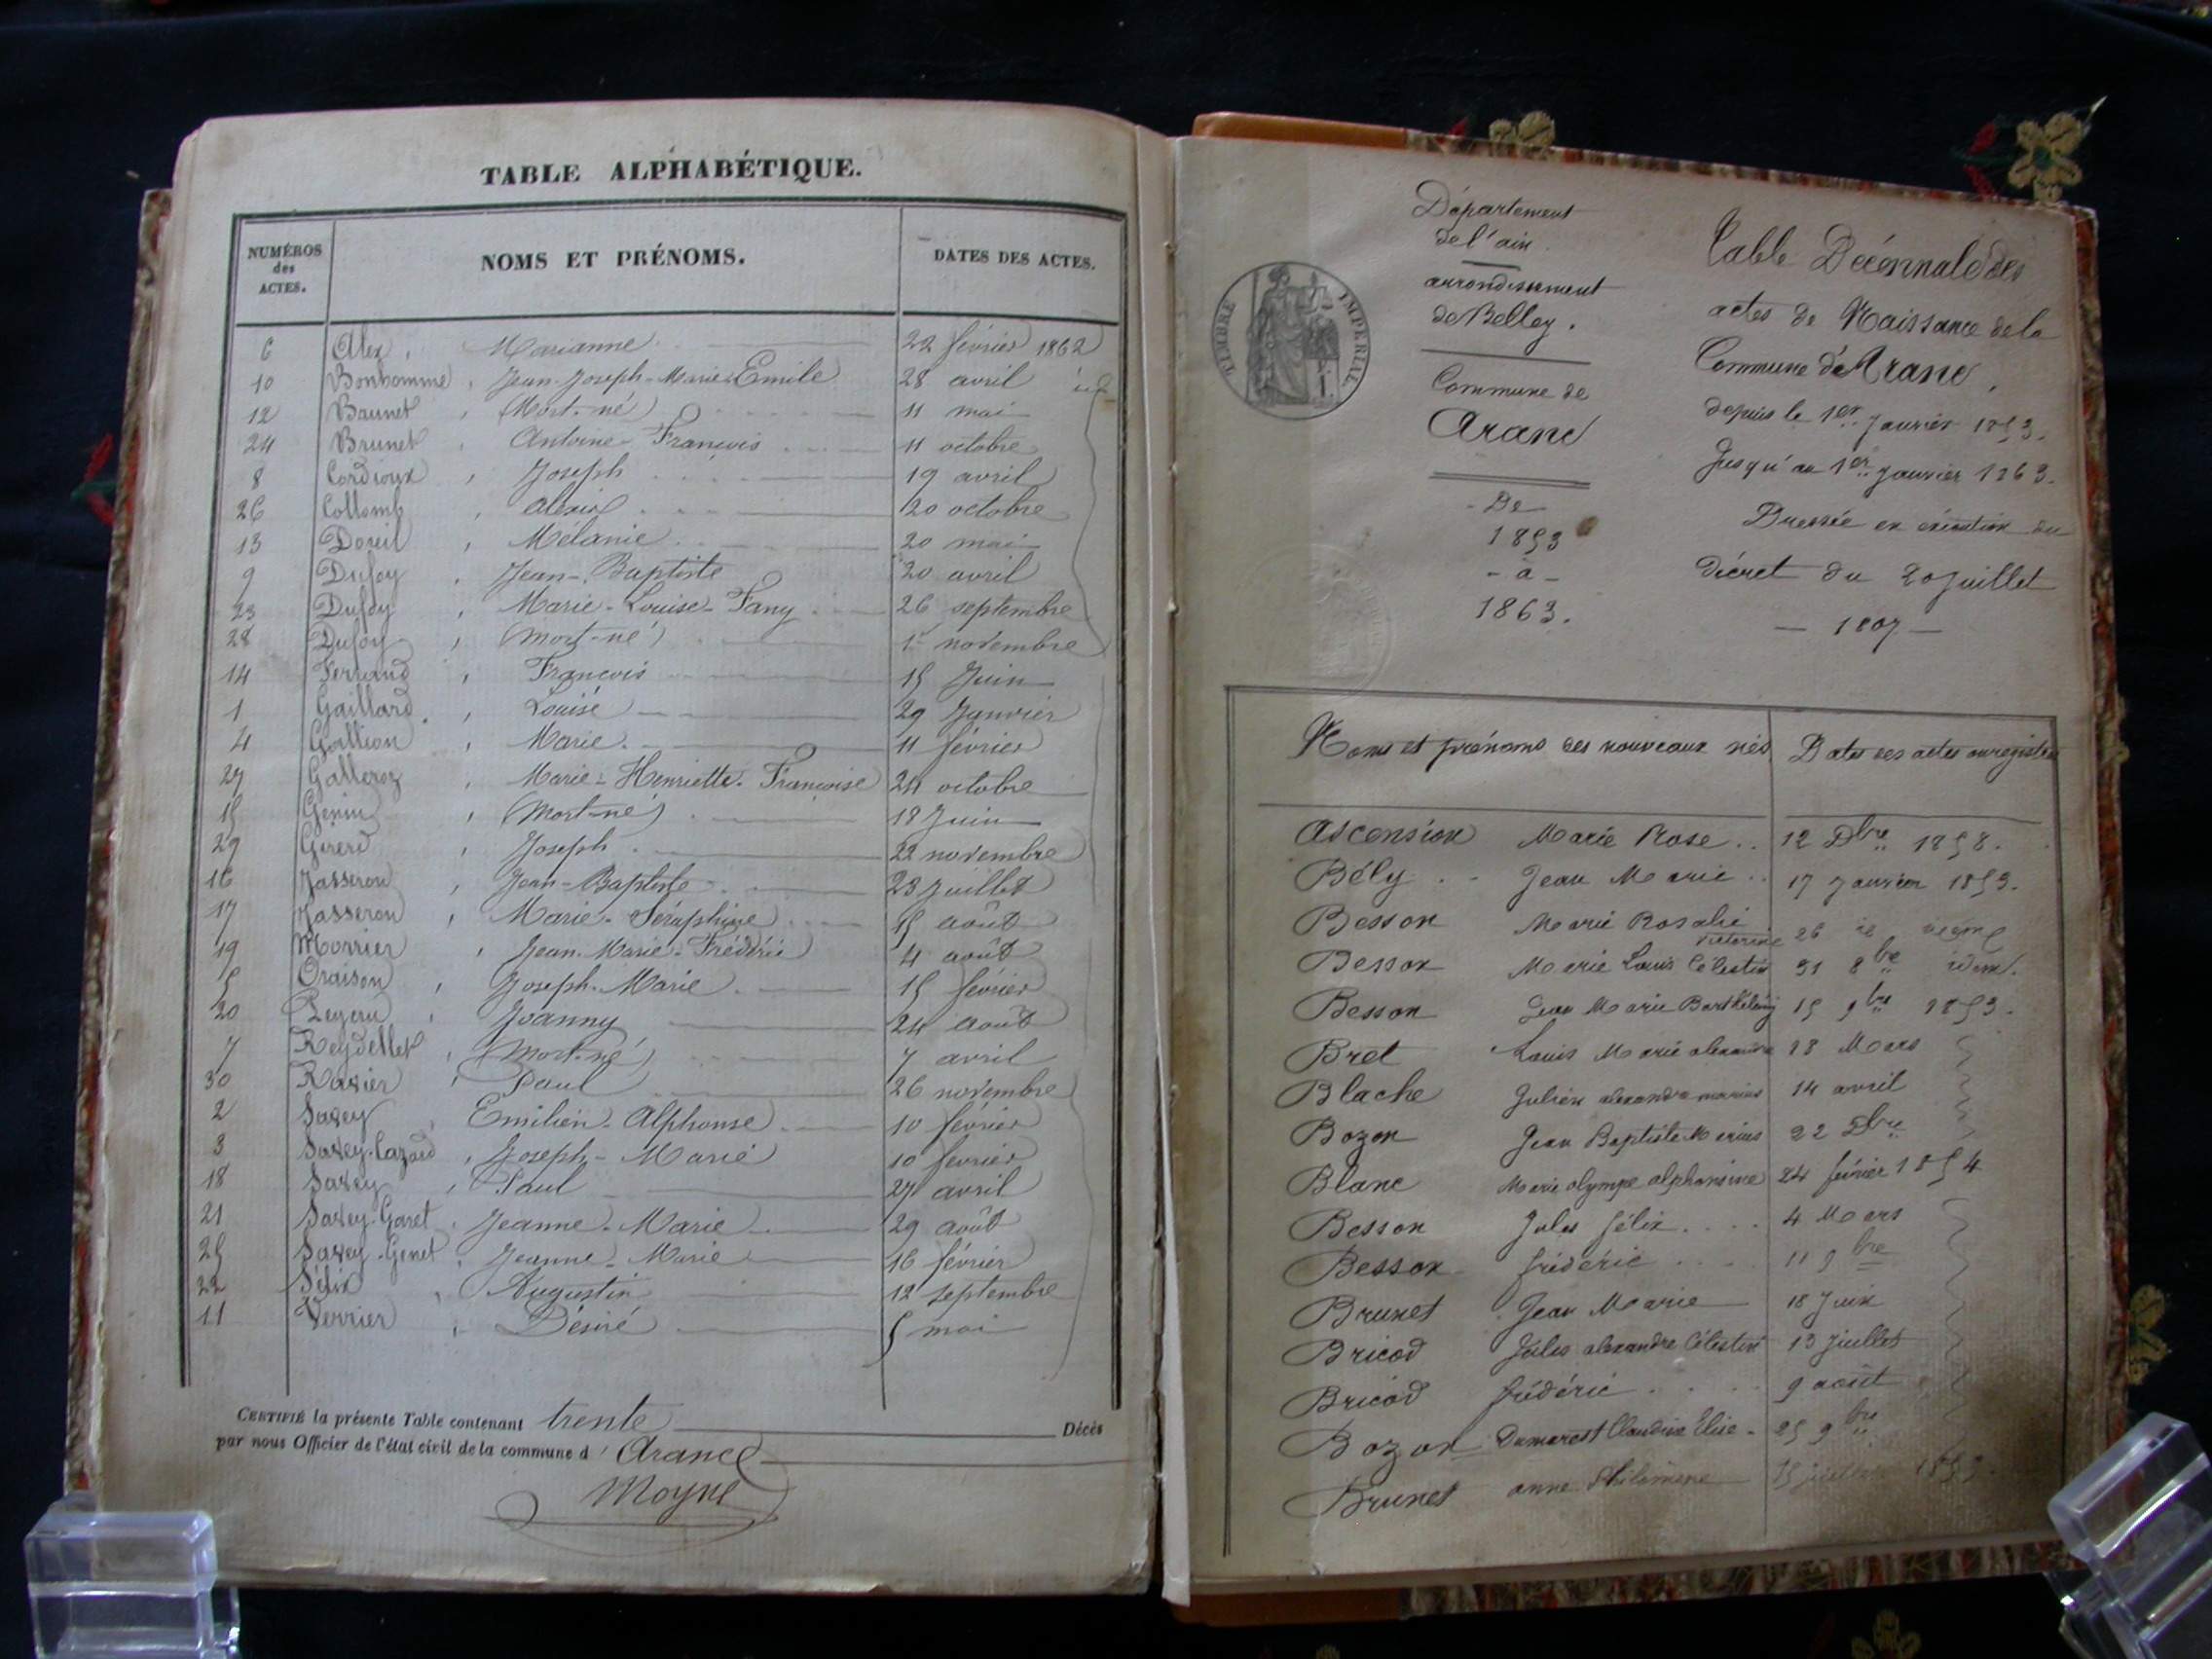 TABLE ALPHABÉTIQUE.
NUMÉROS des ACTES.
NOMS ET PRÉNOMS.
DATES DES ACTES.
6 Alex, Marianne 22 février 1862
10 Bonhomme, Jean-Joseph-Marie-Emile 28 avril id
12 Baunet, (Mort-né) 11 mai
24 Brunet, Antoine-François 11 octobre
8 Cordioux, Joseph 19 avril
26 Collomb, Alexis 20 octobre
13 Mélanie 20 mai
9 Dufoy, Jean-Baptiste 20 avril
23 Dufoy, Marie-Louise-Fany 26 septembre
28 Dufoy, (mort-né) 1er novembre
14 Ferrand, François 15 Juin
1 Gaillard, Louise 29 Janvier
4 Gallion, Marie 11 février
27 Galleroz, Marie-Henriette-Françoise 24 octobre
15 Genin, (Mort-né) 18 Juin
29 Girerd, Joseph 22 novembre
16 Jasseron, Jean-Baptiste 23 Juillet
17 Jasseron, Marie-Séraphine 15 août
19 Morrier, Jean-Marie-Frédéric 4 août
5 Oraison, Joseph-Marie 15 février
20 Joanny 24 août
7 Reydellet, (Mort-né) 7 avril
30 Ravier, Paul 26 novembre
2 Savey, Emilien-Alphonse 10 février
3 Savey-Cazard, Joseph-Marie 10 février
18 Savey, Paul 27 avril
21 Savey-Garet, Jeanne-Marie 29 août
25 Savey-Genet, Jeanne-Marie 16 février
22 Félix, Augustin 12 septembre
11 Verrier, Désiré 5 mai
CERTIFIÉ la présente Table contenant trente Décès
par nous Officier de l'état civil de la commune d' Aranc
Moyne
Département
de l'ain.
arrondissement
de Belley.
Commune de
Aranc
De
1853
- à -
1863.
TIMBRE IMPERIAL
Table Décennale des
actes de Naissance de la
Commune d'Aranc,
depuis le 1er Janvier 1853.
Jusqu'au 1er Janvier 1863.
Dressée en exécution du
décret du 20 Juillet
— 1807 —
Noms et prénoms des nouveaux nés
Dates des actes enregistrés
Ascension Marie Rose .. 12 Dbre 1858.
Bély .. Jean Marie .. 17 Janvier 1853.
Besson Marie Rosalie Victorine 26 id idem
Besson Marie Louis Célestin 31 8bre idem.
Besson Jean Marie Barthélémy 15 9bre 1853.
Bret Louis Marie alexandre 18 Mars
Blache Julien alexandre marius 14 avril
Bozon Jean Baptiste Marius 22 Dbre
Blanc Marie olympe alphonsine 24 février 1854
Besson Jules félix .... 4 Mars
Besson frédéric .... 11 9bre
Brunet Jean Marie 18 Juin
Bricod Jules alexandre Célestin 13 Juillet
Bricod frédéric .... 9 août
Bozon Dumarest Claudine Elise - 25 9bre
Brunet anne Philomène 15 juillet